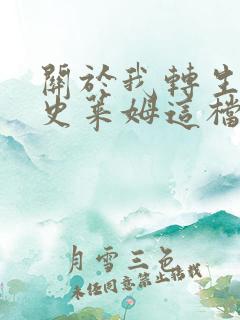 關於我轉生
史萊姆這檔
月雪三色
未任同意禁止搭我